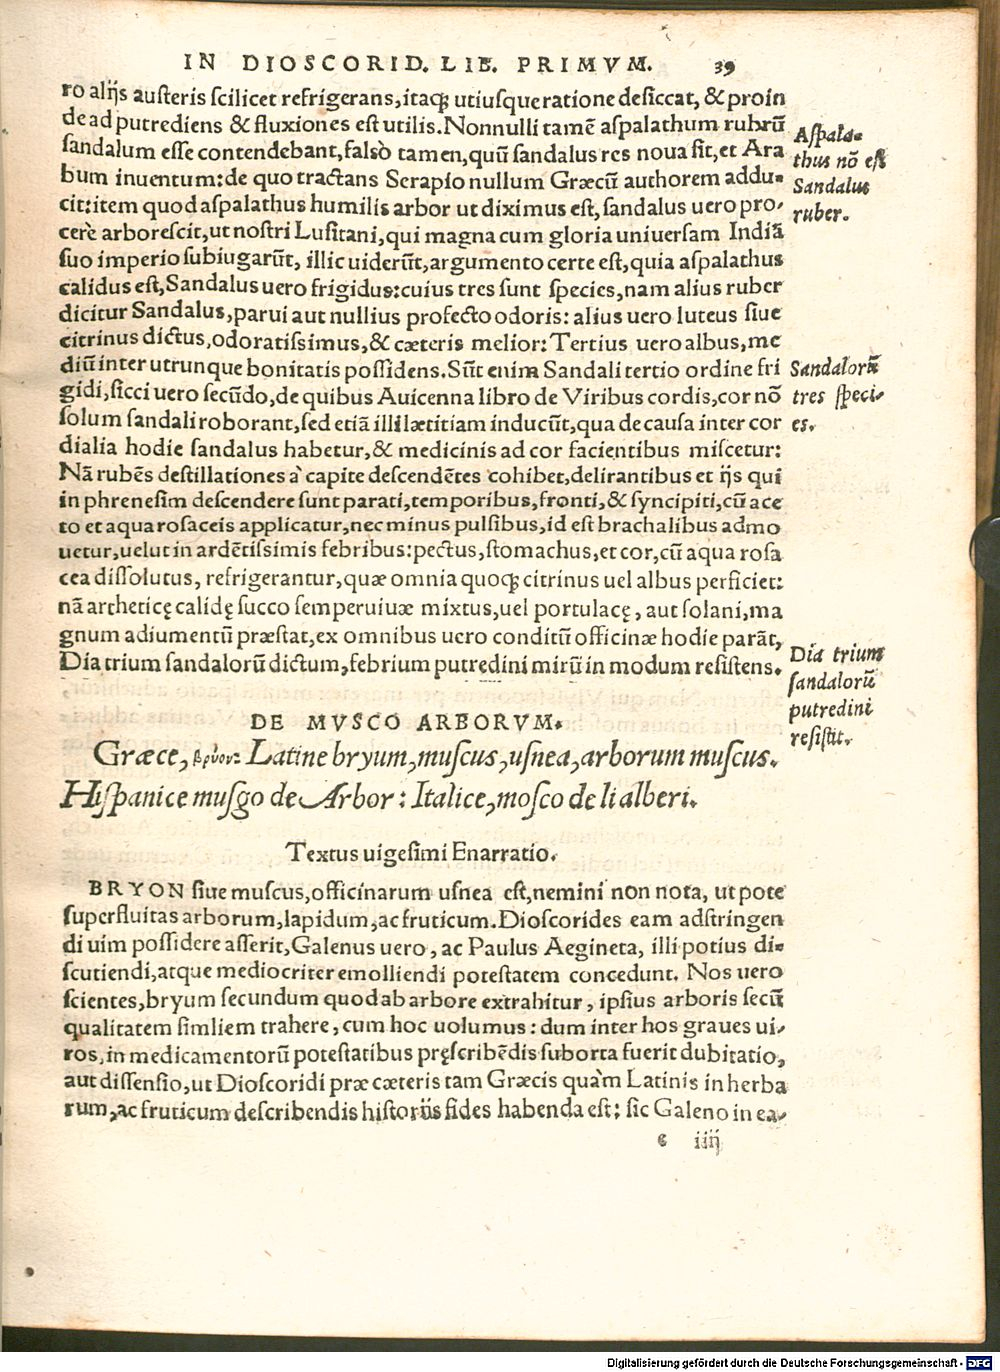 IN DIOSCORID. LIB. PRIMVM. 39
ro alijs austeris scilicet refrigerans, itaq; utiusque ratione desiccat, & proin
de ad putrediens & fluxiones est utilis. Nonnulli tamẽ aspalathum rubrũ
sandalum esse contendebant, falsò tamen, quũ sandalus res noua sit, et Ara
bum inuentum: de quo tractans Serapio nullum Græcũ authorem addu-
cit: item quod aspalathus humilis arbor ut diximus est, sandalus uero pro-
cerè arborescit, ut nostri Lusitani, qui magna cum gloria uniuersam Indiã
suo imperio subiugarũt, illic uiderũt, argumento certe est, quia aspalathus
calidus est, Sandalus uero frigidus: cuius tres sunt species, nam alius ruber
dicitur Sandalus, parui aut nullius profecto odoris: alius uero luteus siue
citrinus dictus, odoratissimus, & cæteris melior: Tertius uero albus, me
diũ inter utrunque bonitatis possidens. Sũt enim Sandali tertio ordine fri
gidi, sicci uero secũdo, de quibus Auicenna libro de Viribus cordis, cor nõ
solum sandali roborant, sed etiã illi lætitiam inducũt, qua de causa inter cor
dialia hodie sandalus habetur, & medicinis ad cor facientibus miscetur:
Nã rubẽs destillationes à capite descendẽtes cohibet, delirantibus et ijs qui
in phrenesim descendere sunt parati, temporibus, fronti, & syncipiti, cũ ace
to et aqua rosaceis applicatur, nec minus pulsibus, id est brachalibus admo
uetur, uelut in ardẽtissimis febribus: pectus, stomachus, et cor, cũ aqua rosa
cea dissolutus, refrigerantur, quæ omnia quoq; citrinus uel albus perficiet:
nã artheticę calidę succo semperuiuæ mixtus, uel portulacę, aut solani, ma
gnum adiumentũ præstat, ex omnibus uero conditũ officinæ hodie parãt,
Dia trium sandalorũ dictum, febrium putredini mirũ in modum resistens.
Aspala-
thus nõ est
Sandalus
ruber.
Sandalorũ
tres speci-
es.
Dia trium
sandalorũ
putredini
resistit.
DE MVSCO ARBORVM.
Græce, βρύον: Latine bryum, muscus, usnea, arborum muscus.
Hispanice musgo de Arbor: Italice, mosco de li alberi.
Textus uigesimi Enarratio.
BRYON siue muscus, officinarum usnea est, nemini non nota, ut pote
superfluitas arborum, lapidum, ac fruticum. Dioscorides eam adstringen
di uim possidere asserit, Galenus uero, ac Paulus Aegineta, illi potius di-
scutiendi, atque mediocriter emolliendi potestatem concedunt. Nos uero
scientes, bryum secundum quod ab arbore extrahitur, ipsius arboris secũ
qualitatem simliem trahere, cum hoc uolumus: dum inter hos graues ui-
ros, in medicamentorũ potestatibus pręscribẽdis suborta fuerit dubitatio,
aut dissensio, ut Dioscoridi præ cæteris tam Græcis quàm Latinis in herba
rum, ac fruticum describendis historijs fides habenda est: sic Galeno in ea-
e iiij
Digitalisierung gefördert durch die Deutsche Forschungsgemeinschaft - DFG